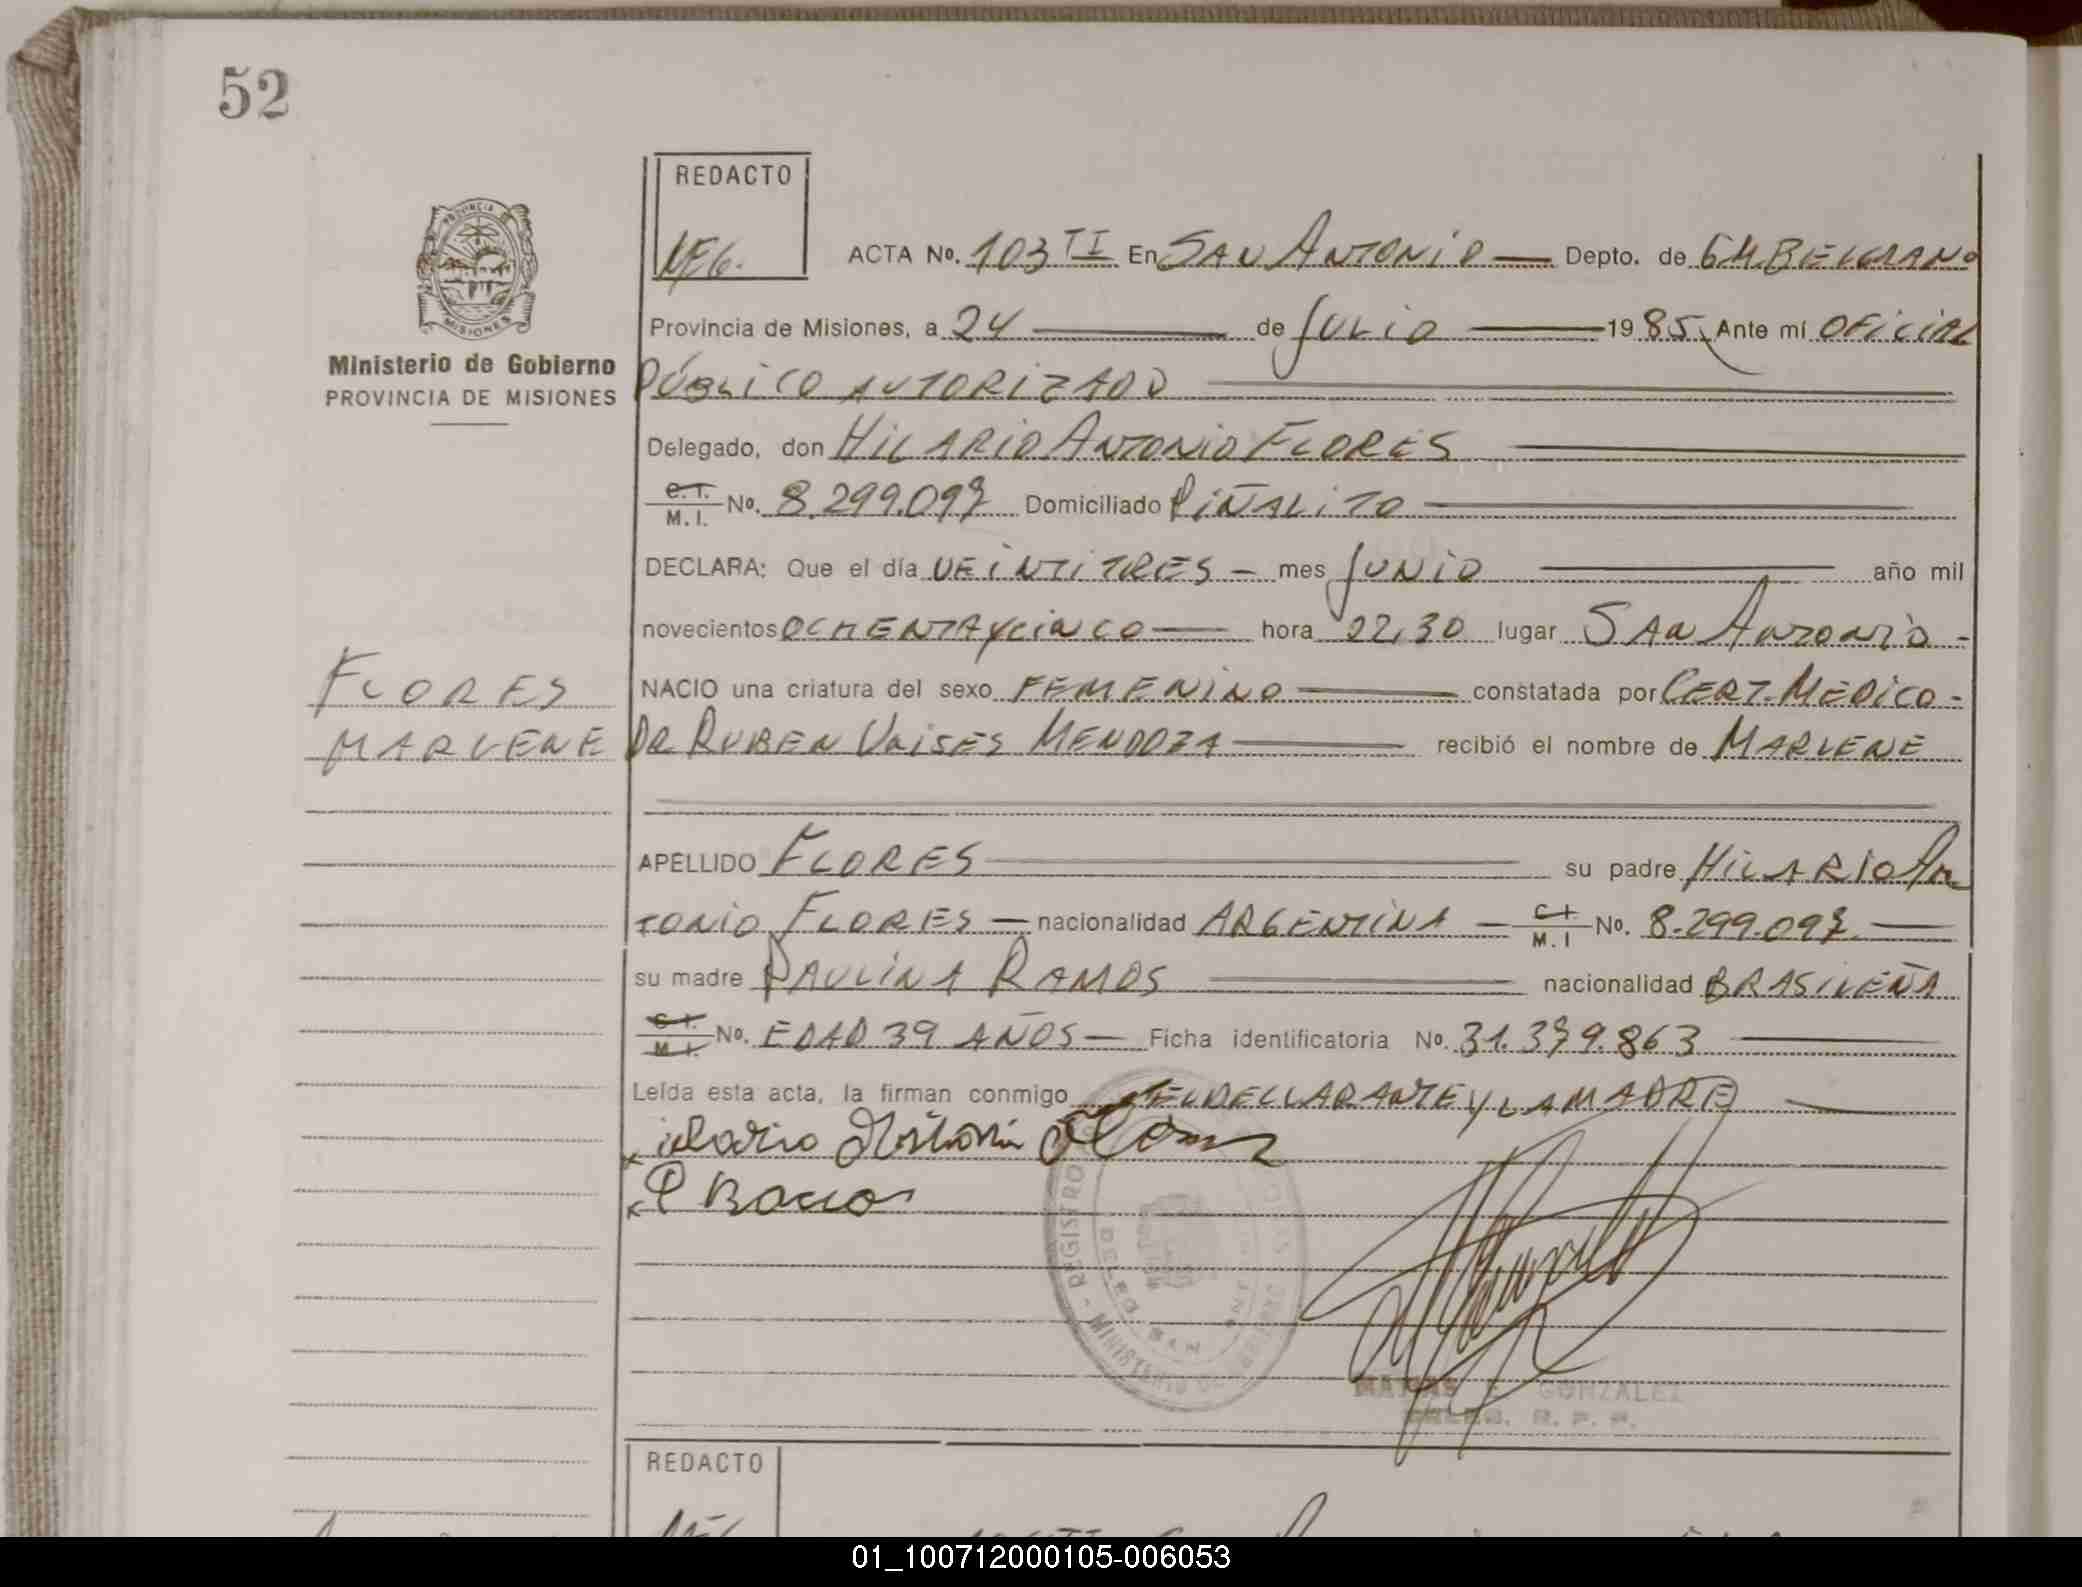 52
REDACTO
MEG.
ACTA No. 103 TI En SAN ANTONIO Depto. de GM. BELGRANO
PROVINCIA
MISIONES
Provincia de Misiones, a 24 de JULIO 1985, Ante mí OFICIAL
Ministerio de Gobierno
PROVINCIA DE MISIONES
PÚBLICO AUTORIZADO
Delegado, don HILARIO ANTONIO FLORES
C.I. M.I. No. 8.299.097 Domiciliado PIÑALITO
DECLARA: Que el día VEINTITRES - mes JUNIO año mil
novecientos OCHENTA Y CINCO hora 22,30 lugar SAN ANTONIO -
NACIO una criatura del sexo FEMENINO constatada por CERT. MEDICO -
FLORES
MARLENE
DR RUBEN ULISES MENDOZA recibió el nombre de MARLENE
APELLIDO FLORES su padre HILARIO AN
TONIO FLORES nacionalidad ARGENTINA - C.I. M.I No. 8.299.097
su madre PAULINA RAMOS nacionalidad BRASILEÑA
C.I. M.I. No. EDAD 39 AÑOS - Ficha identificatoria No. 31.379.863
Leída esta acta, la firman conmigo EL DECLARANTE Y LA MADRE
REGISTRO
MINISTERIO DE GOBIERNO
GONZALEZ
REDACTO
01_100712000105-006053